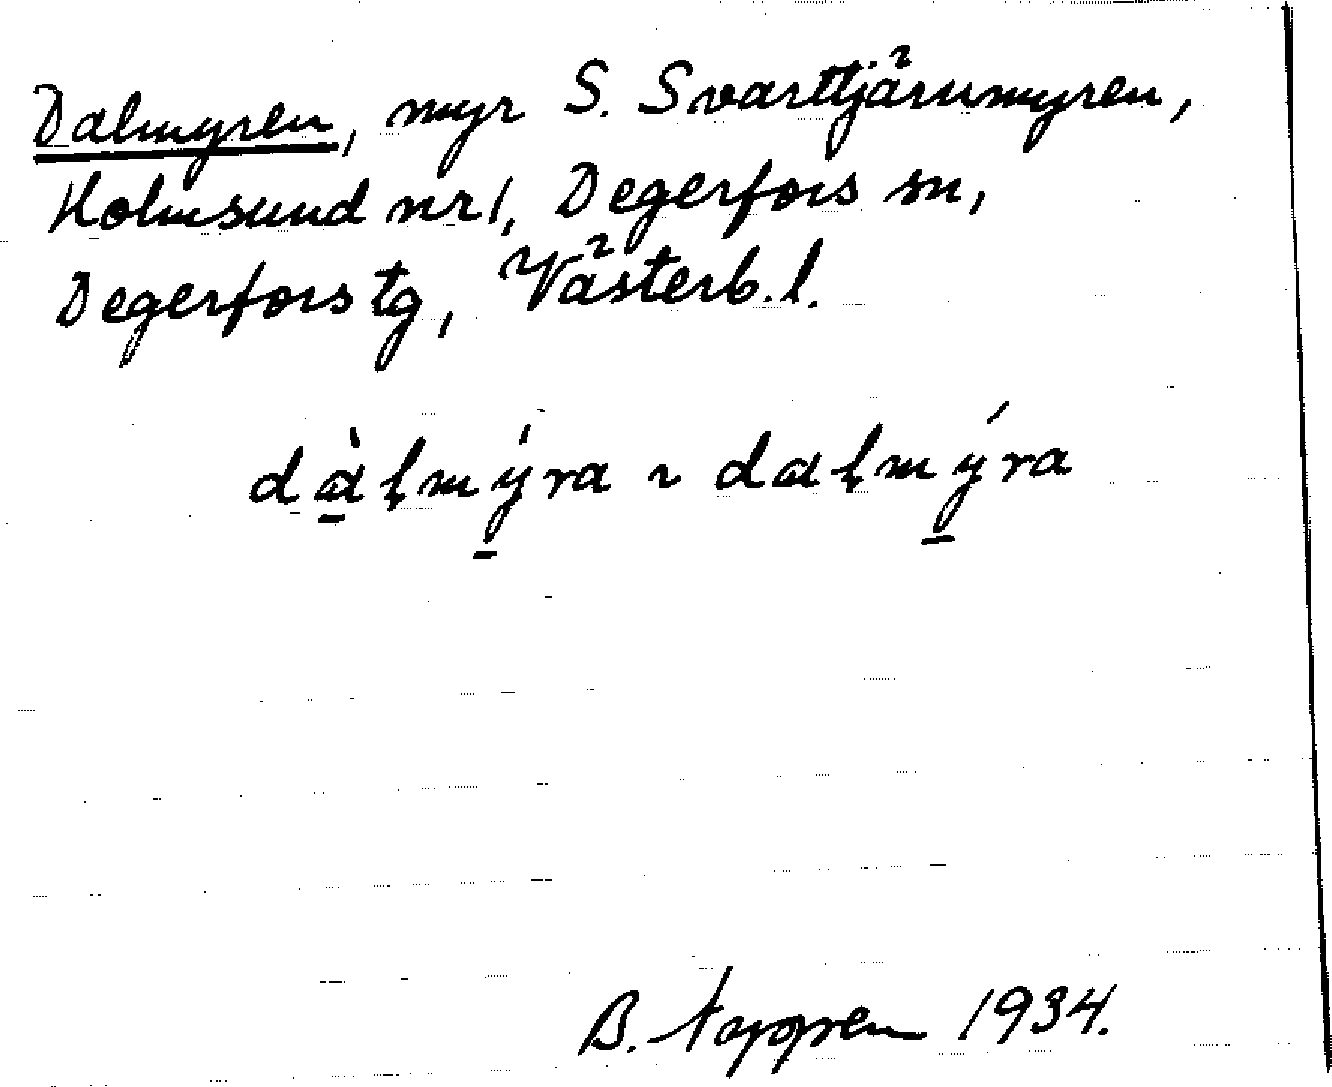 Dalmyren, myr S. Svarttjärnmyren,
Holmsund nr 1, Degerfors sn,
Degerfors tg, Västerb. l.
dàḷmýra ~ daḷmýra
B. 1934.